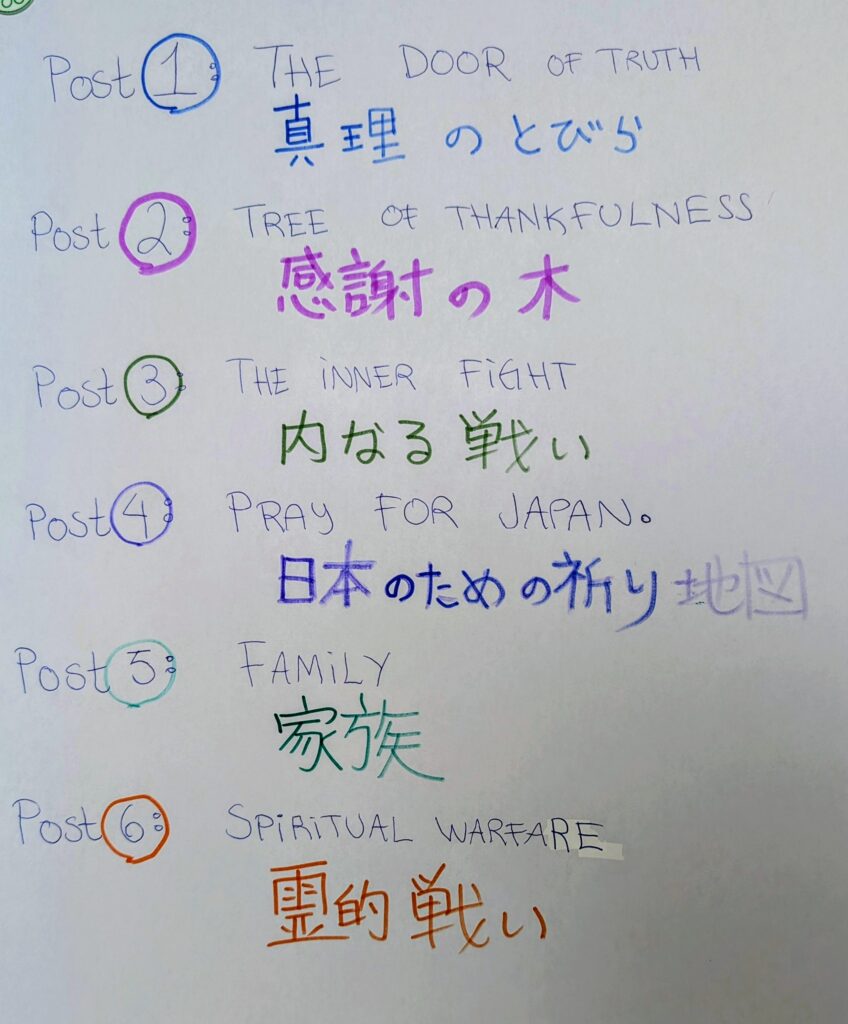 Post 1: THE DOOR OF TRUTH
真理のとびら
Post 2: TREE OF THANKFULNESS
感謝の木
Post 3: THE INNER FIGHT
内なる戦い
Post 4: PRAY FOR JAPAN.
日本のための祈り地図
Post 5: FAMILY
家族
Post 6: SPIRITUAL WARFARE
霊的戦い